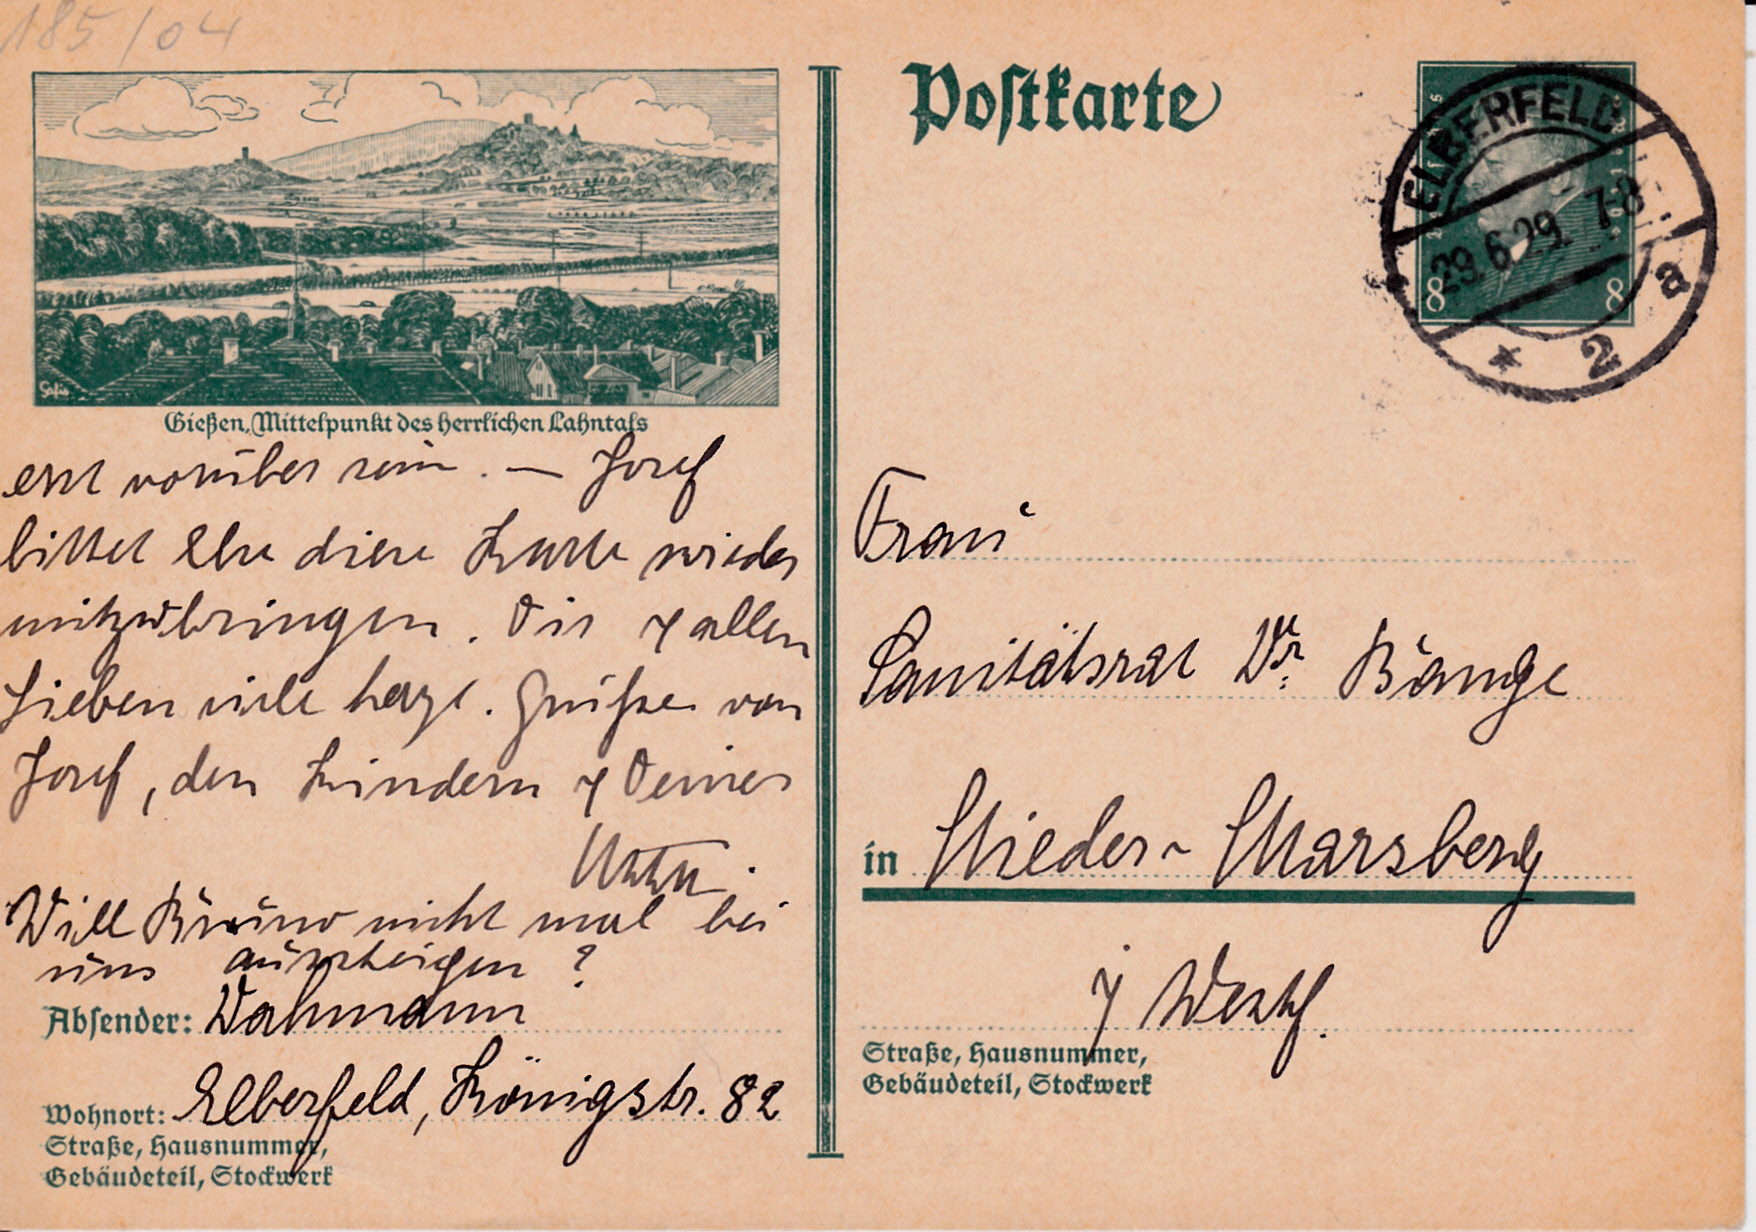 185/04
Gießen, Mittelpunkt des herrlichen Lahntals
erst vorüber sein. — Josef
bittet diese Karte wieder
mitzubringen. Dir & allen
Lieben viele herzl. Grüße von
Josef, den Kindern & Deiner
Will Bruno nicht mal bei
uns aussteigen?
Absender: Wahmann
Wohnort: Elberfeld, Königstr. 82
Straße, Hausnummer,
Gebäudeteil, Stockwerk
Postkarte
ELBERFELD
29.6.29. 7-8
* 2 a
8 8
Frau
Sanitätsrat Dr. Bange
in Nieder-Marsberg
i/ Westf.
Straße, Hausnummer,
Gebäudeteil, Stockwerk